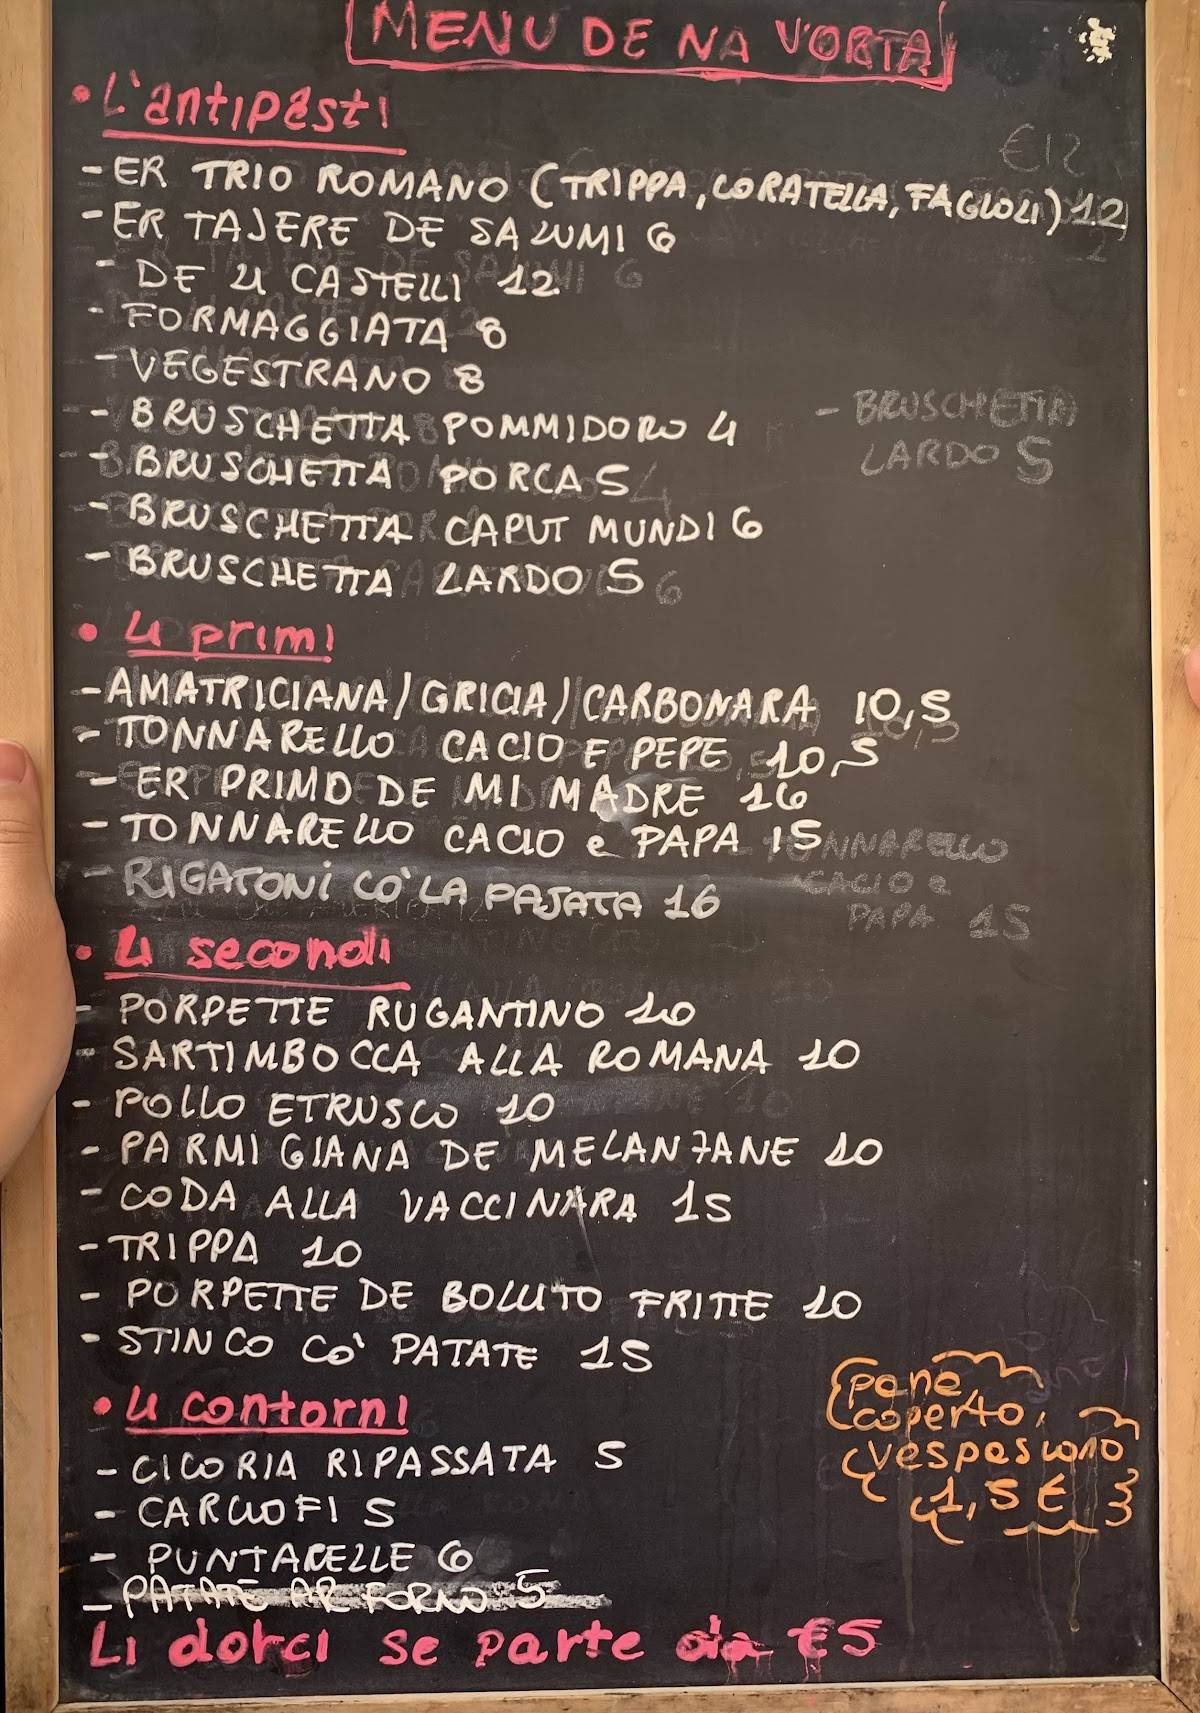 MENU DE NA VORTA
• L'antipasti
€12
- ER TRIO ROMANO (TRIPPA, CORATELLA, FAGIOLI) 12
- ER TAJERE DE SALUMI 6
- DE LI CASTELLI 12
- FORMAGGIATA 8
- VEGESTRANO 8
- BRUSCHETTA POMMIDORO 4
- BRUSCHETTA
LARDO 5
- BRUSCHETTA PORCA 5
- BRUSCHETTA CAPUT MUNDI 6
- BRUSCHETTA LARDO 5
• Li primi
- AMATRICIANA/GRICIA/CARBONARA 10,5
- TONNARELLO CACIO E PEPE 10,5
- ER PRIMO DE MI MADRE 16
- TONNARELLO CACIO e PAPA 15
TONNARELLO
CACIO e
PAPA 15
- RIGATONI CO' LA PAJATA 16
• Li secondi
- PORPETTE RUGANTINO 10
- SARTIMBOCCA ALLA ROMANA 10
- POLLO ETRUSCO 10
- PARMIGIANA DE MELANZANE 10
- CODA ALLA VACCINARA 15
- TRIPPA 10
- PORPETTE DE BOLLITO FRITTE 10
- STINCO CO' PATATE 15
• Li contorni
- CICORIA RIPASSATA 5
- CARCIOFI 5
- PUNTARELLE 6
- PATATE AR FORNO 5
pane,
coperto,
vespasiano
1,5 €
Li dorci se parte da €5